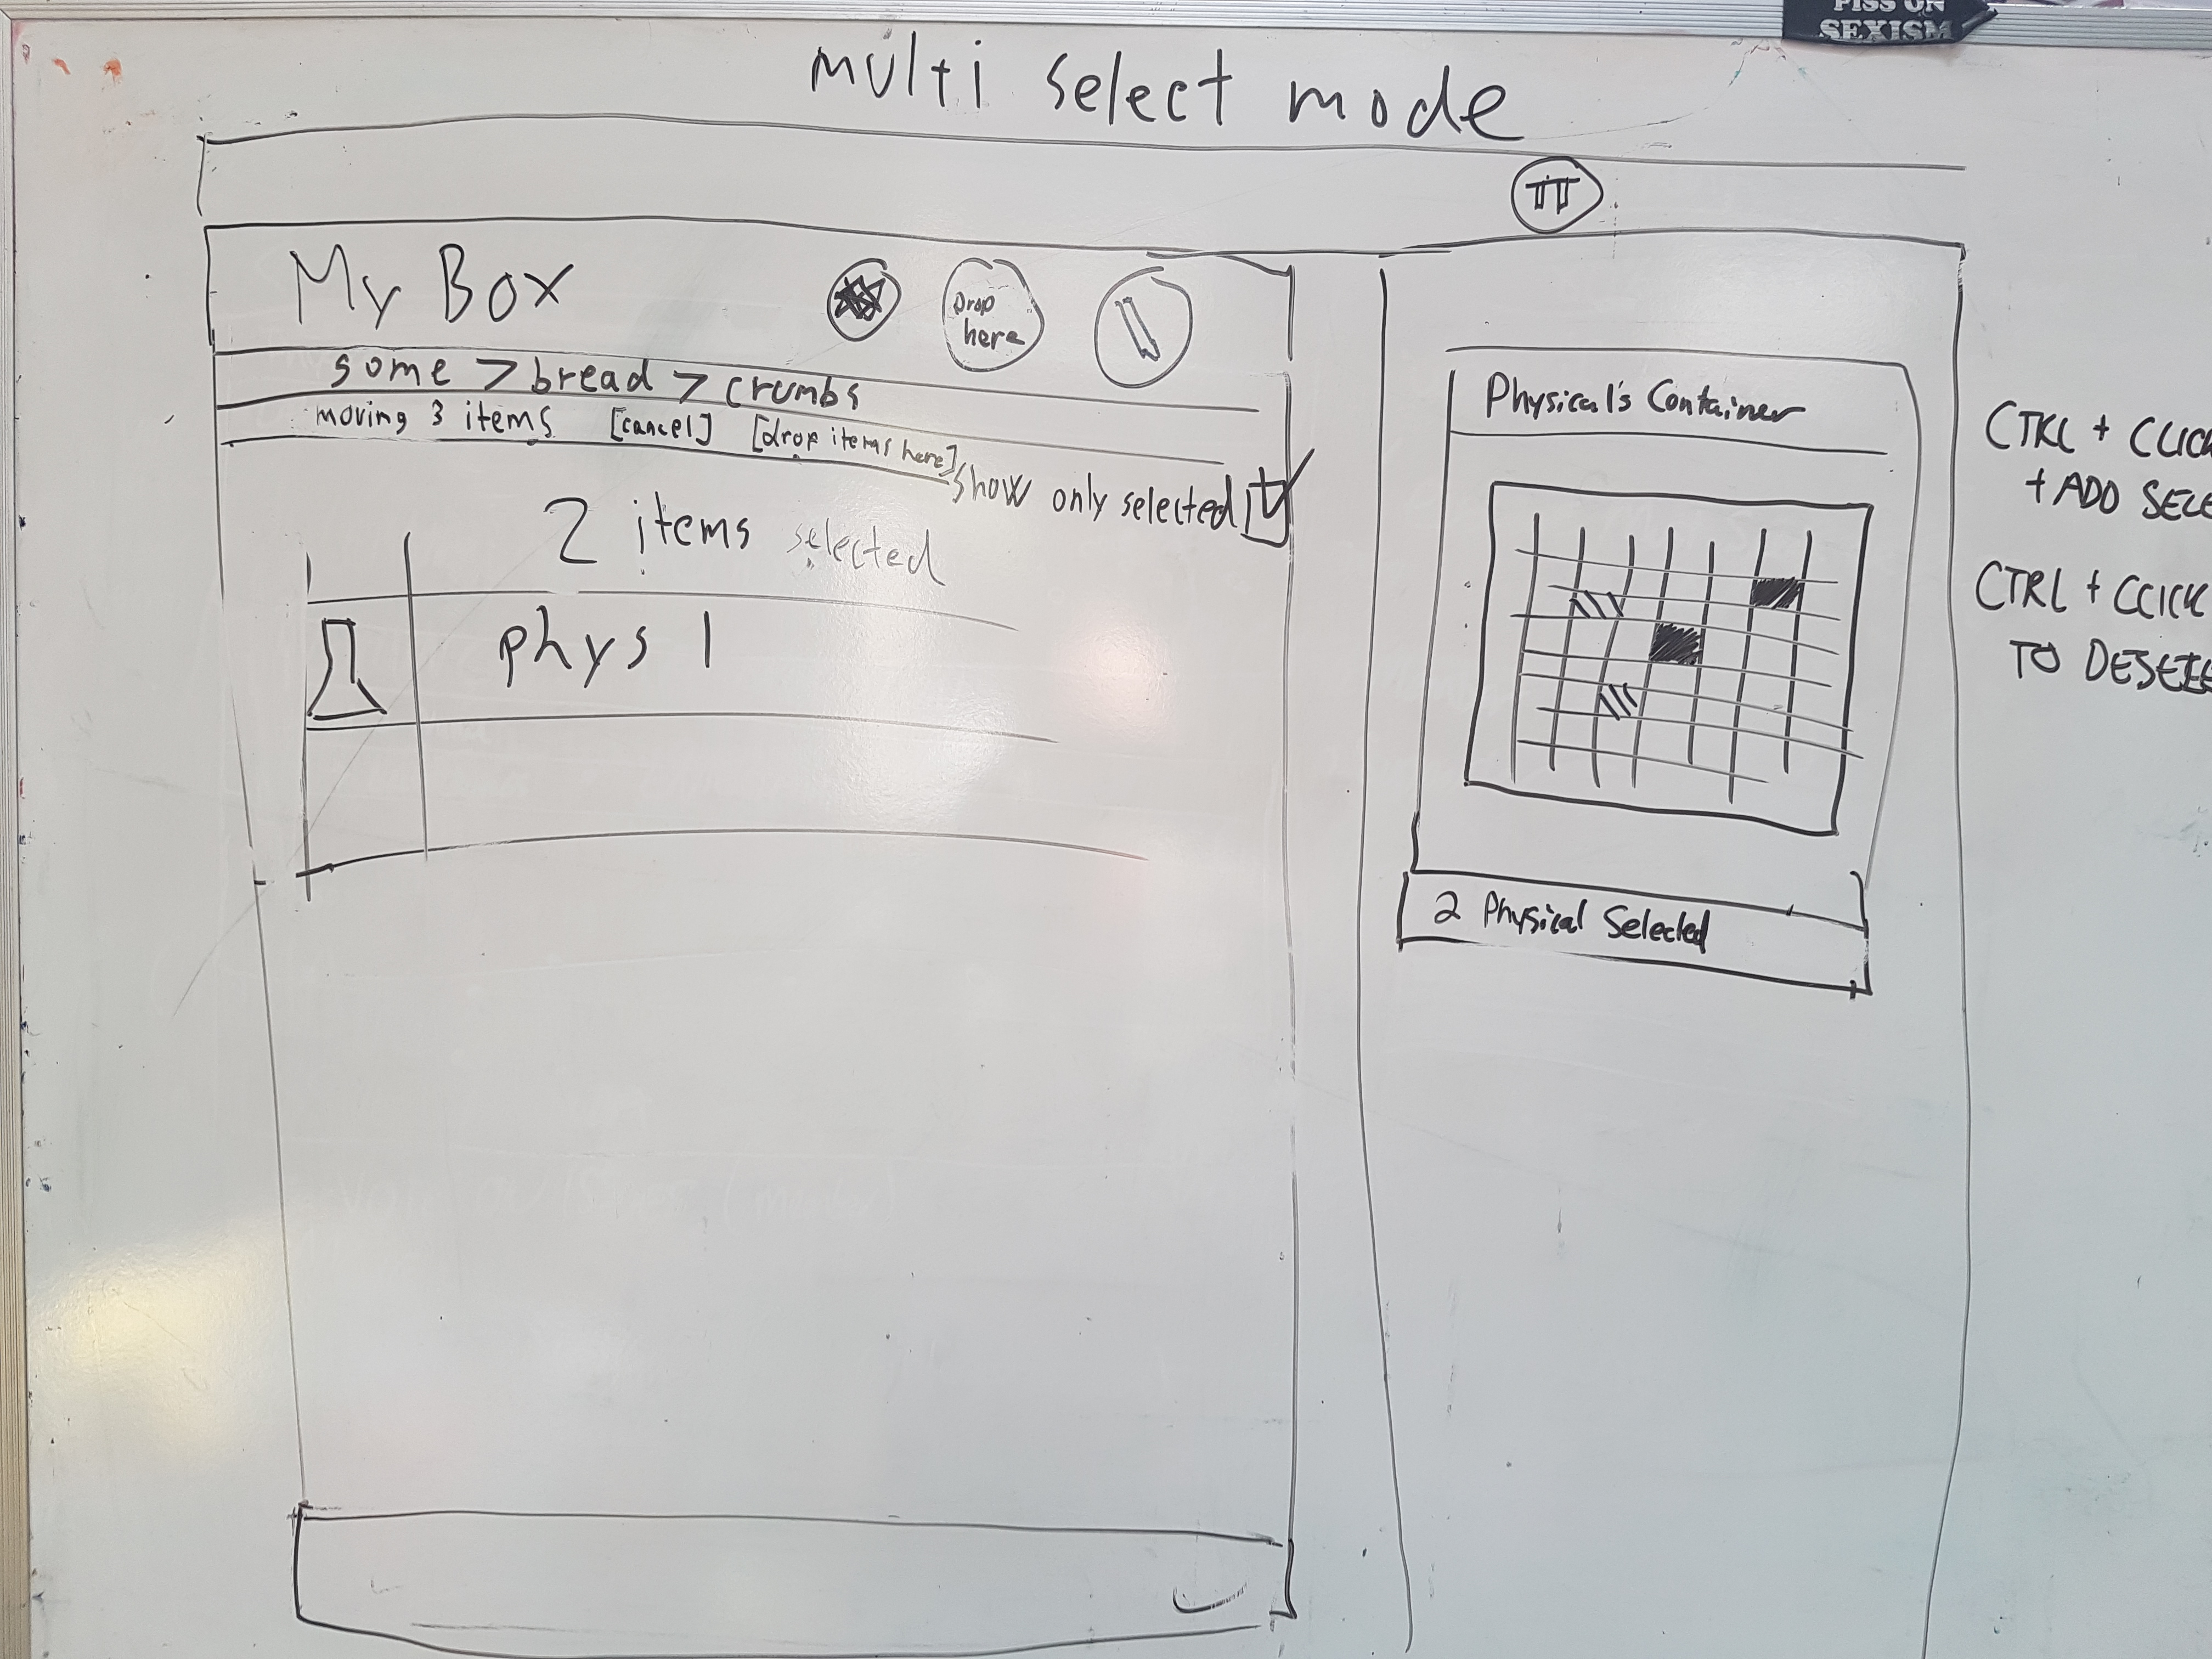 PISS ON
SEXISM
multi select mode
My Box
Drop
here
some > bread > crumbs
moving 3 items [cancel] [drop items here]
show only selected
2 items selected
phys 1
Physical's Container
2 Physical Selected
CTRL + CLICK
+ ADD SELE
CTRL + CLICK
TO DESELE